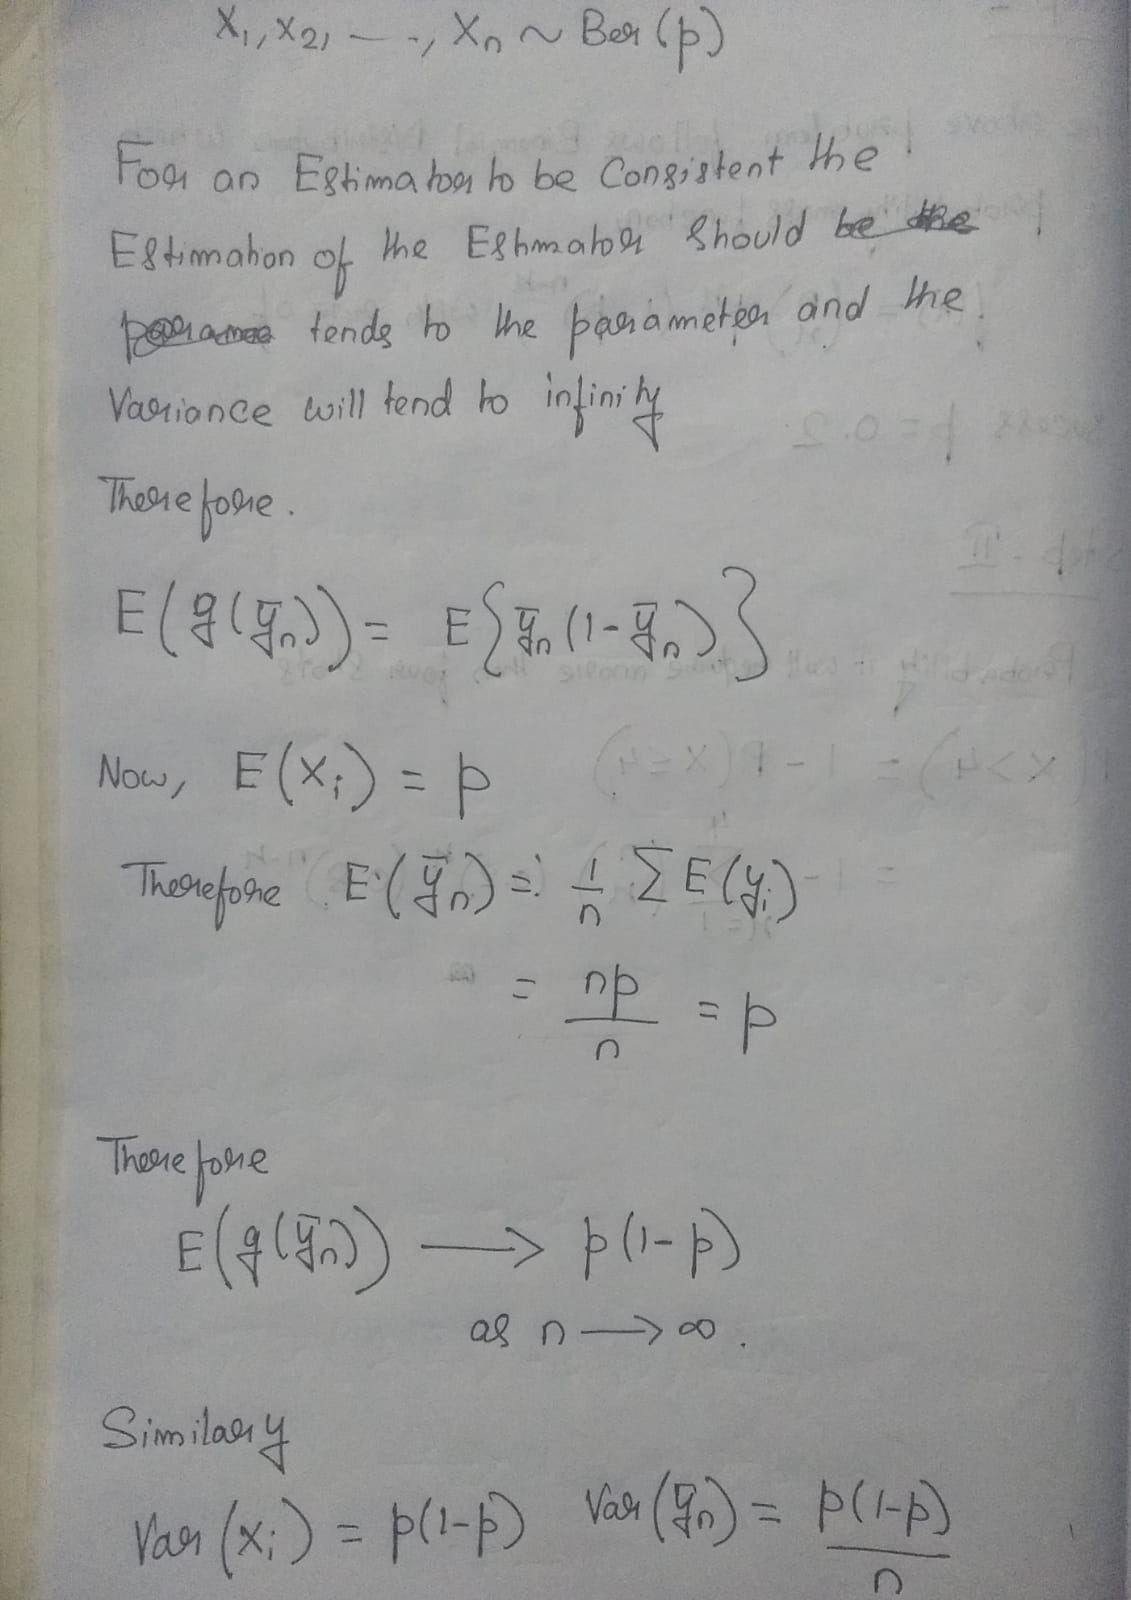 X₁, X₂, – –, Xₙ ~ Ber (p)
For an Estimator to be Consistent the
Estimation of the Estimator should be the
tends to the parameter and the
Variance will tend to infinity
Therefore.
E(g(ȳₙ)) = E{ȳₙ(1-ȳₙ)}
Now, E(Xᵢ) = p
Therefore E(ȳₙ) = 1/n Σ E(yᵢ)
= np/n = p
Therefore
E(g(ȳₙ)) → p(1-p)
as n → ∞.
Similary
Var(xᵢ) = p(1-p) Var(ȳₙ) = p(1-p)/n